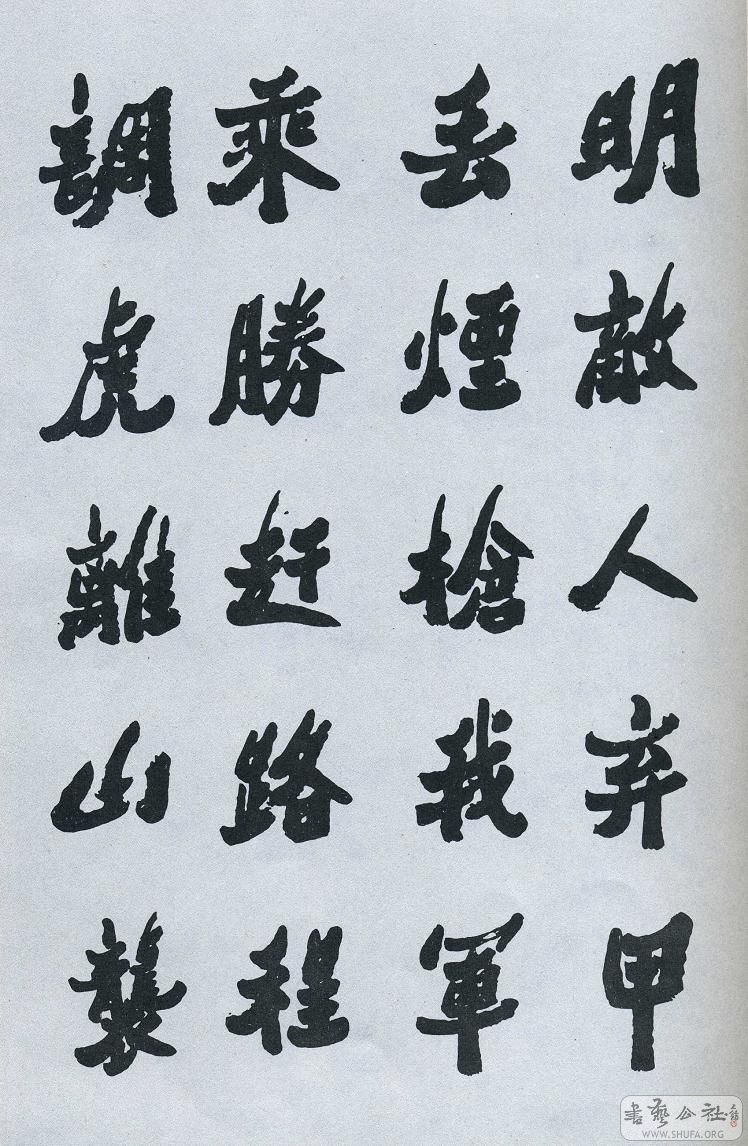 明敵人弃甲
丢煙槍我軍
乘勝赶路程
調虎離山襲
書藝公社
WWW.SHUFA.ORG